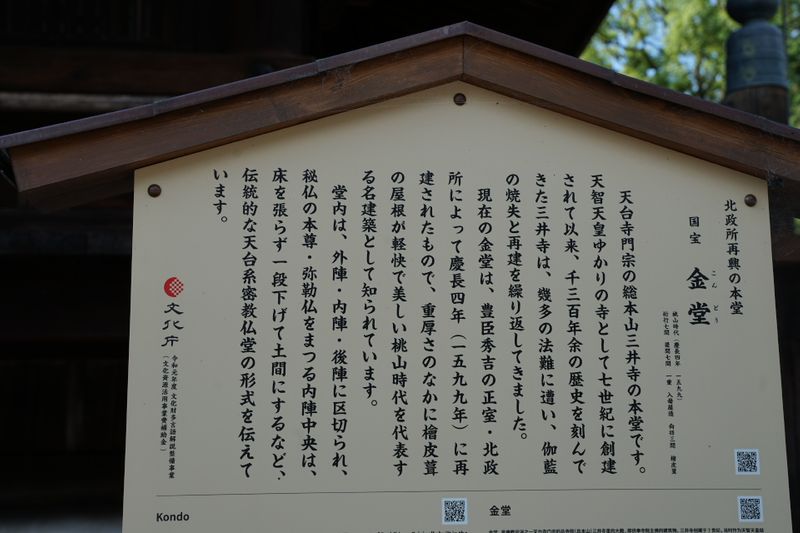 北政所再興の本堂
国宝 金堂
こんどう
桃山時代(慶長四年 一五九九)
天台寺門宗の総本山三井寺の本堂です。
天智天皇ゆかりの寺として七世紀に創建
されて以来、千三百年余の歴史を刻んで
きた三井寺は、幾多の法難に遭い、伽藍
の焼失と再建を繰り返してきました。
現在の金堂は、豊臣秀吉の正室・北政
所によって慶長四年(一五九九年)に再
建されたもので、重厚さのなかに檜皮葺
の屋根が軽快で美しい桃山時代を代表す
る名建築として知られています。
堂内は、外陣・内陣・後陣に区切られ、
秘仏の本尊・弥勒仏をまつる内陣中央は、
床を張らず一段下げて土間にするなど、
伝統的な天台系密教仏堂の形式を伝えて
います。
文化庁
令和元年度 文化財多言語解説整備事業
(文化資源活用事業費補助金)
Kondo
金堂